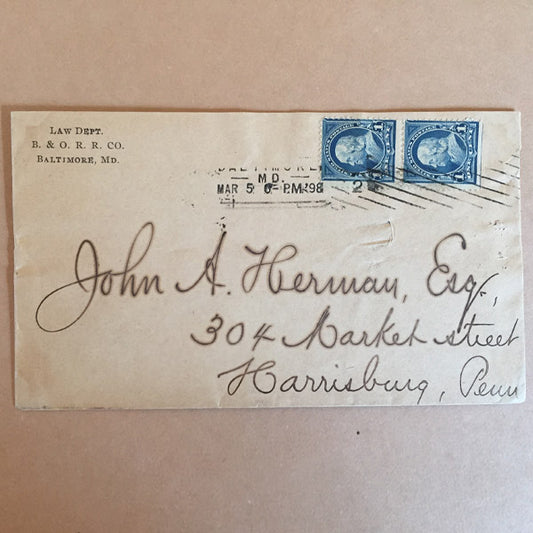 LAW DEPT.
B. & O. R. R. CO.
BALTIMORE, MD.
1 1
BALTIMORE
MD.
MAR 5 6-PM '98
2
John A. Herman, Esq.,
304 Market street
Harrisburg, Penn